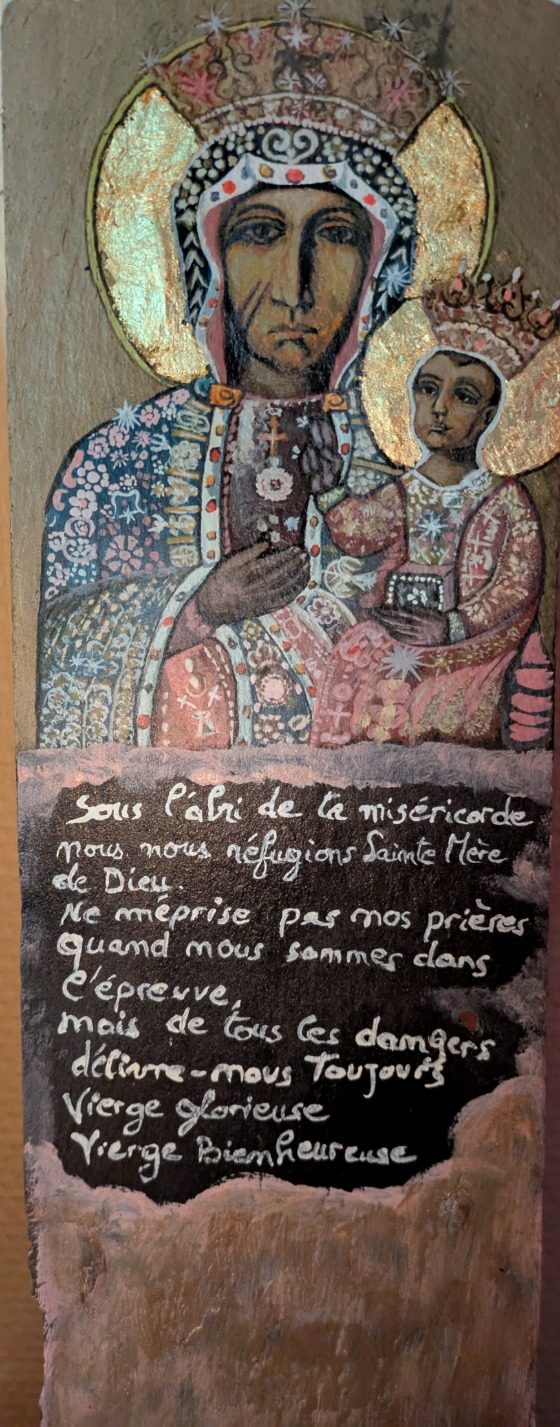 Sous l'abri de la miséricorde
nous nous réfugions Sainte Mère
de Dieu.
Ne méprise pas nos prières
quand nous sommes dans
l'épreuve,
mais de tous les dangers
délivre-nous Toujours
Vierge glorieuse
Vierge Bienheureuse